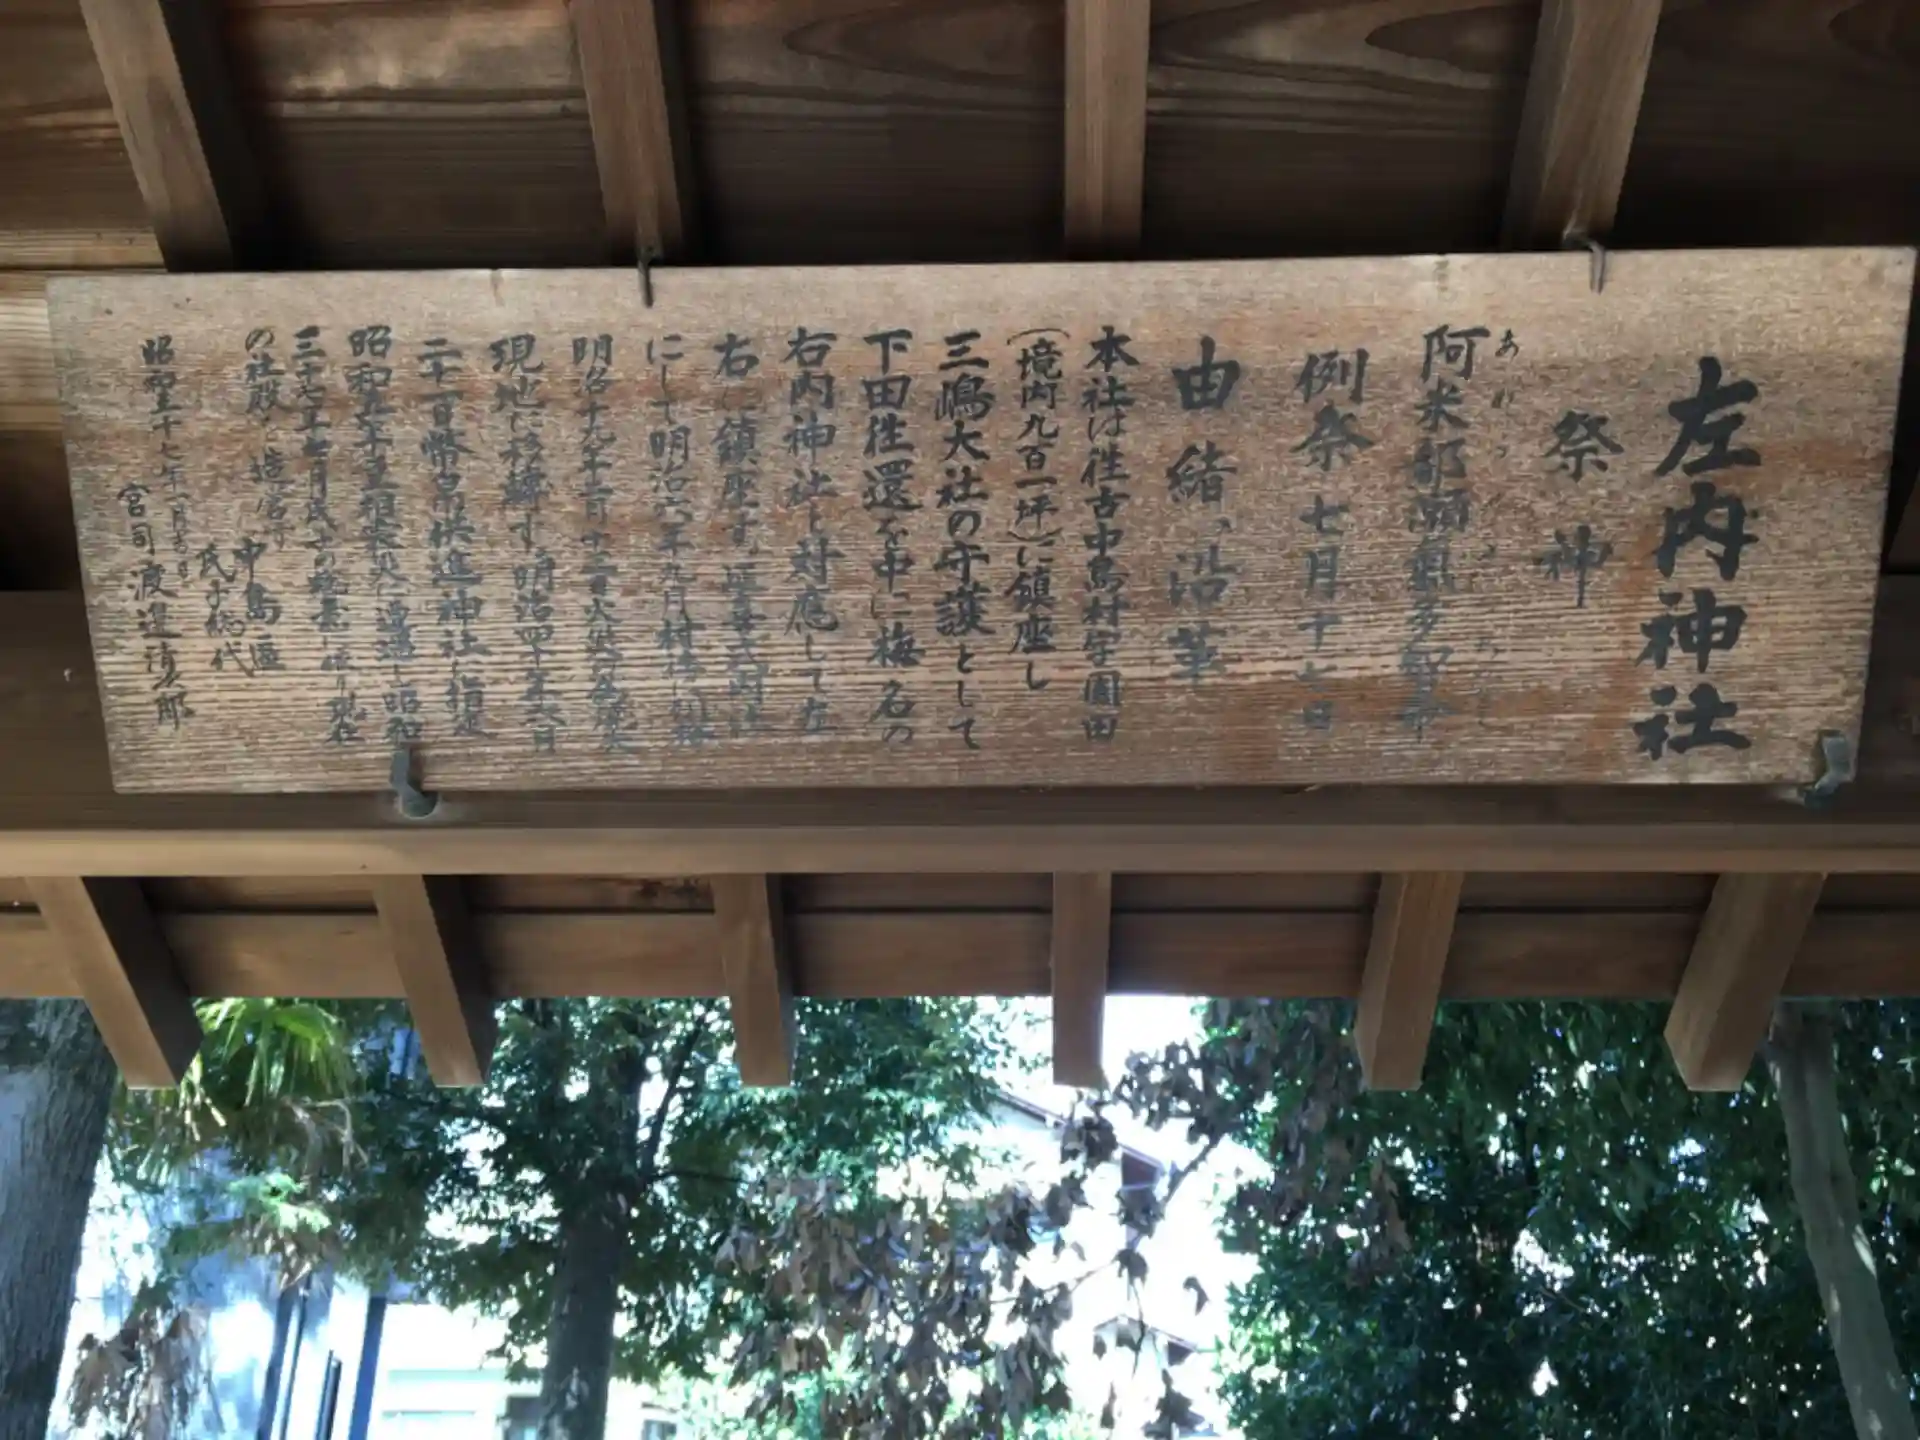 左内神社
祭神
阿米都瀬氣多知命
例祭 七月十七日
由緒、沿革
本社は往古中島村字園田
(境内九百一坪)に鎮座し
三嶋大社の守護として
下田往還を中に梅名の
右内神社と対應して左
右に鎮座す。
にして明治六年九月村社に列格
明治十九年十二月十二日火災
現地に移轉す。明治四十年六月
二十一日幣帛供進神社に指定
昭和五年豆相震災に遭遇し昭和
三十七年七月氏子の總意に依り現在
の社殿を造営す
中島區
氏子総代
昭和三十七年
宮司 渡邊